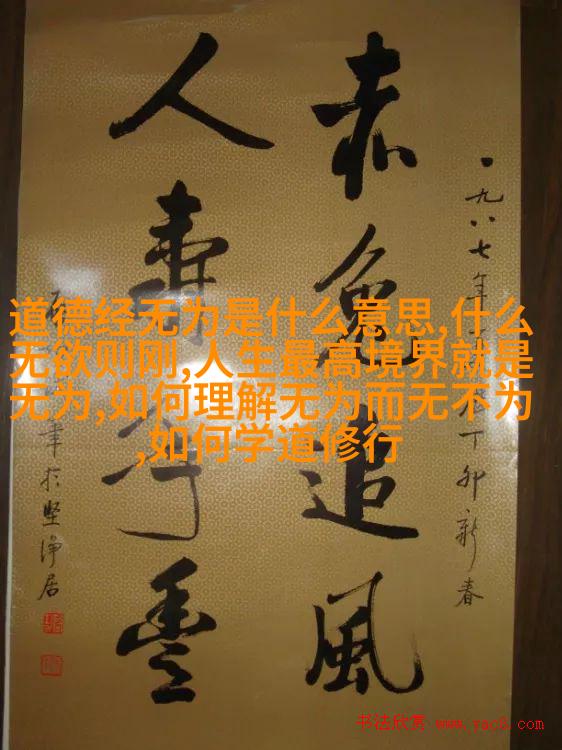 道德经无为是什么意思,什么
无欲则刚,人生最高境界就是
无为,如何理解无为而无不为
,如何学道修行
一九八七年
丁卯新春
赤兔追風
人壽年豐
筆於坚净居
书法欣赏 www.yac8.com